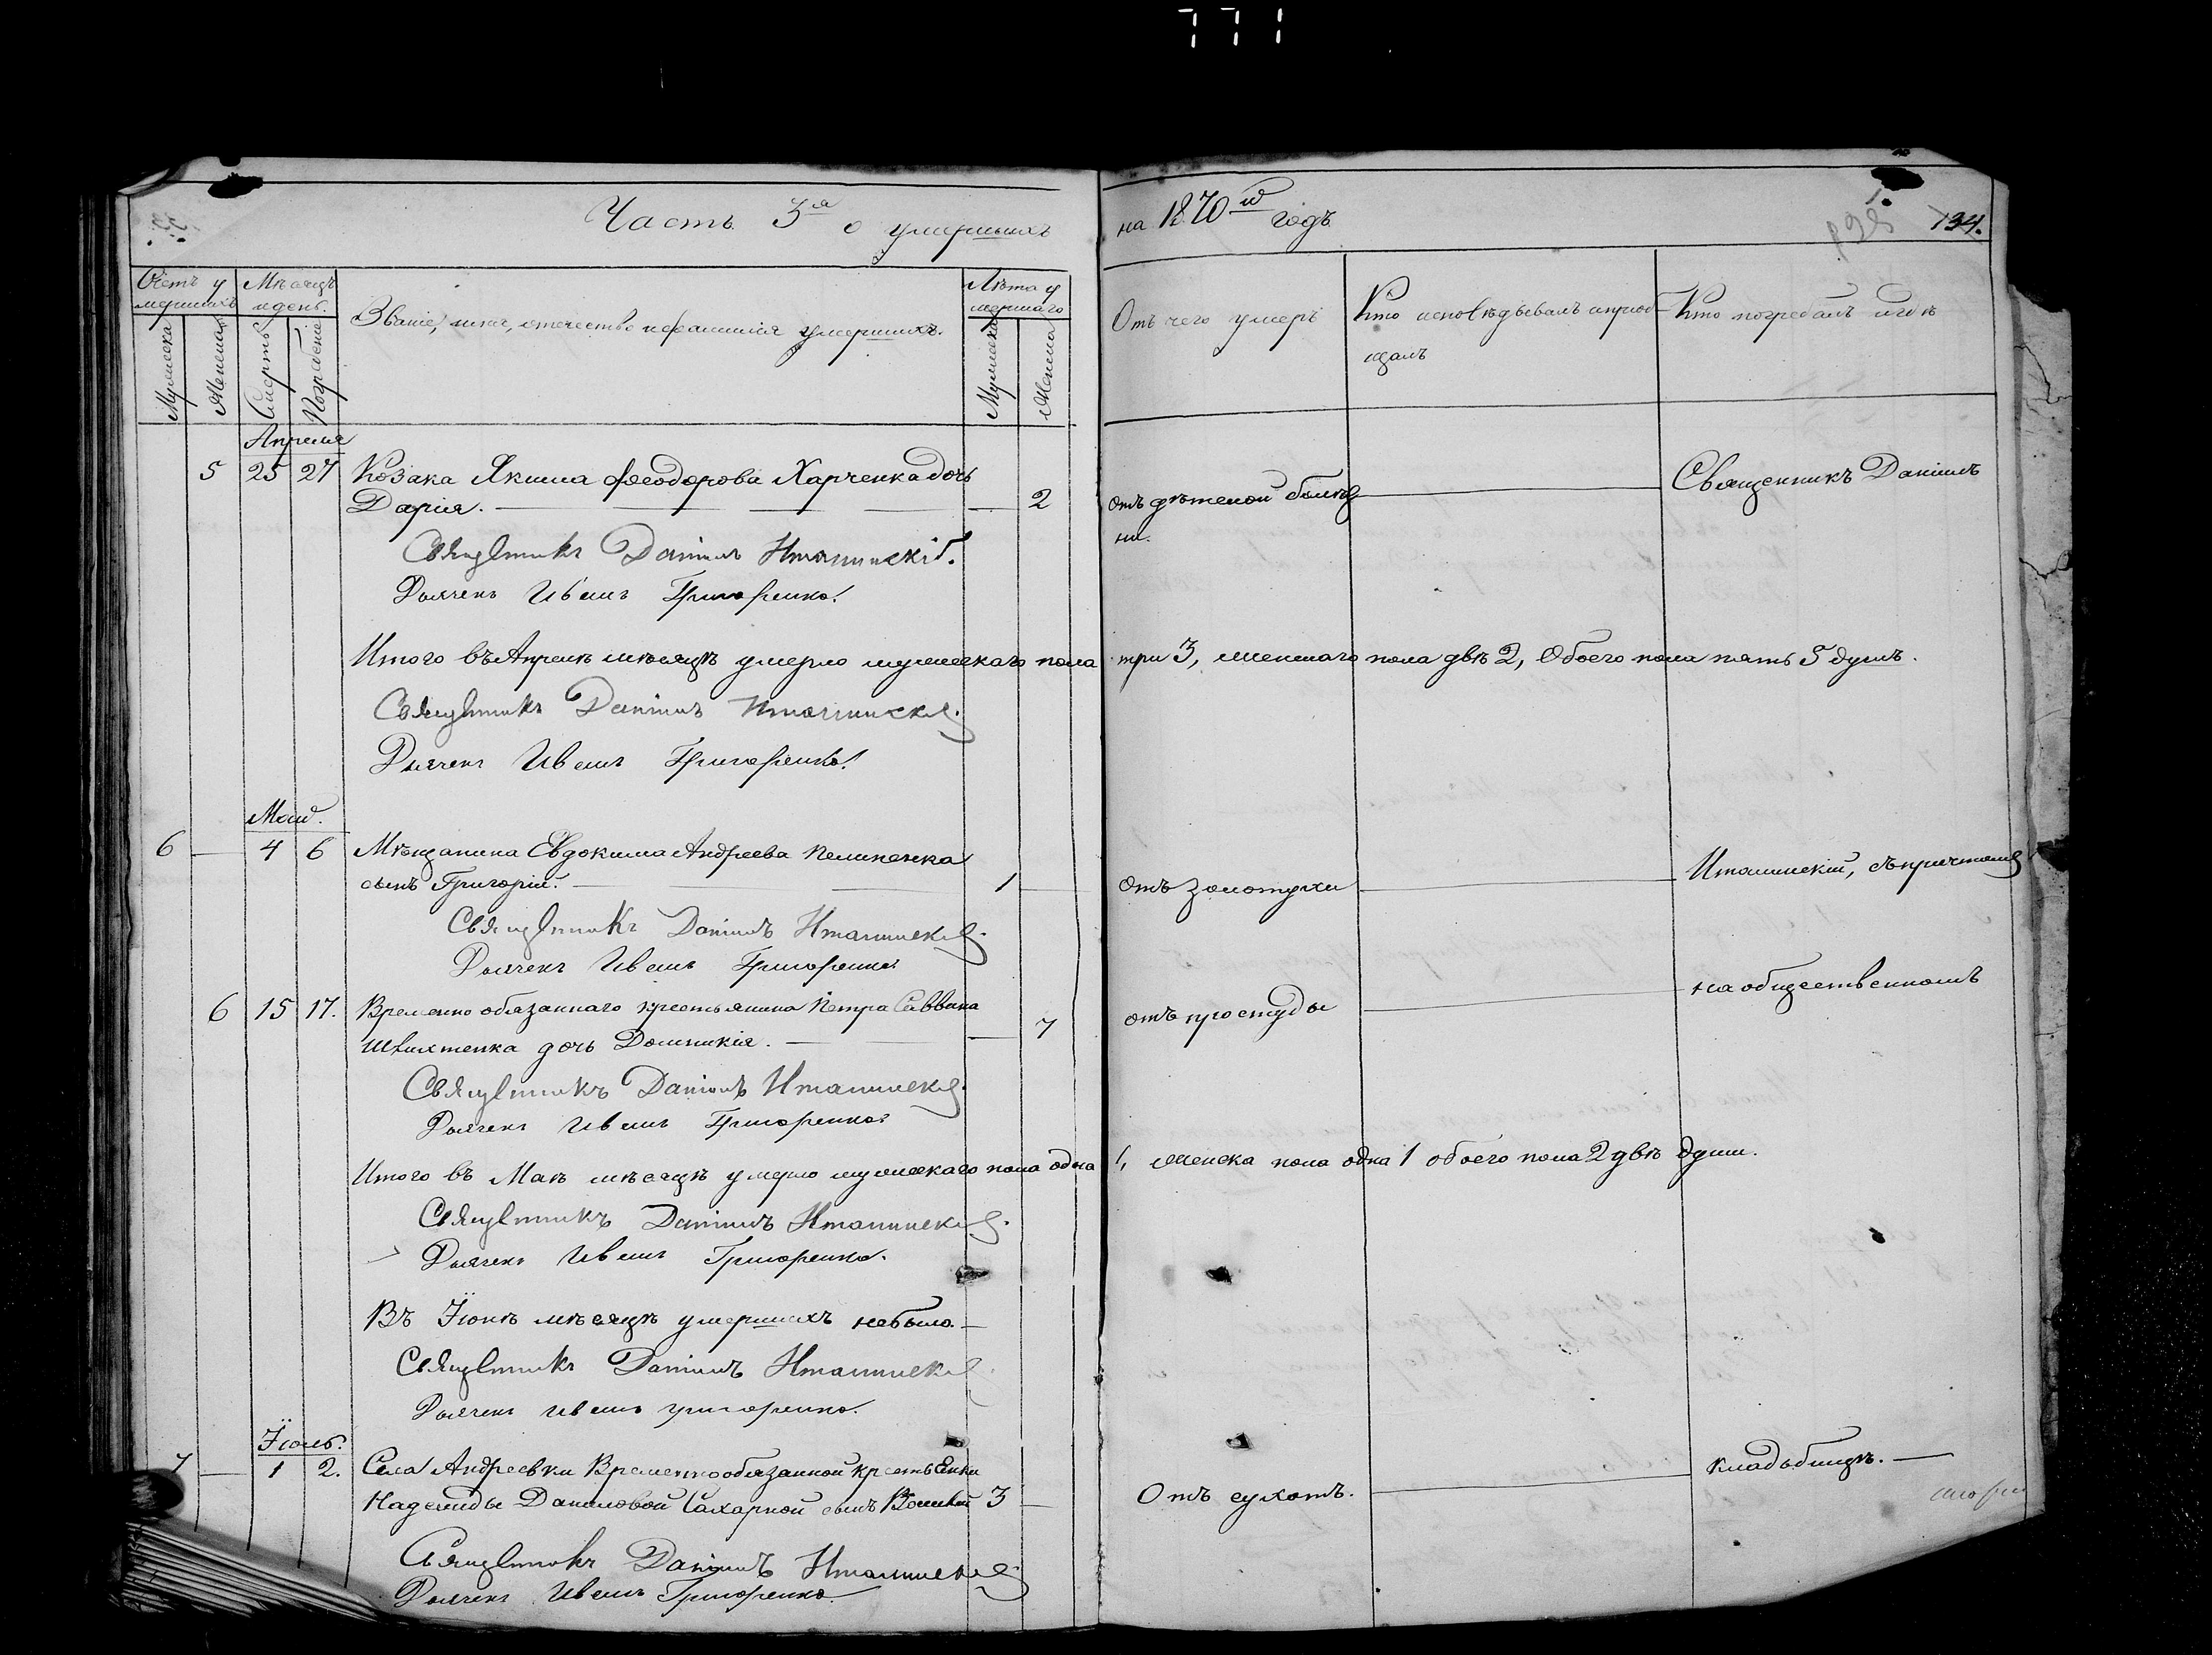 771
Часть 3ꙗ о умершихъ
на 1870й годъ
134.
Счетъ у
мершихъ
Мѣсяцъ
и день.
Званіе, имя, отечество и фамилія умершихъ.
Лѣта у
мершаго
Мужеска
Женска
Смерть
Погребеніе
Мужеска
Женска
Отъ чего умеръ
Кто исповѣдывалъ и приоб-
щалъ
Кто погребалъ и гдѣ
Апрѣля
5 25 27 Козака Якима Феодорова Харченка дочь
Дарія. — 2 отъ дѣтской болѣз
ни. — Священникъ Даніилъ
Священникъ Даніилъ Италинскій.
Дьячекъ Иванъ Григоренко.
Итого въ Апрелѣ мѣсяцѣ умерло мужескаго пола три 3, женскаго пола двѣ 2, Обоего пола пять 5 душъ.
Священникъ Даніилъ Италинскій.
Дьячекъ Иванъ Григоренко.
Май.
6 — 4 6 Мѣщанина Евдокима Андреева
сынъ Григорій. — 1 — Отъ золотухи — Италинскій, съ причтомъ
Священникъ Даніилъ Италинскій.
Дьячекъ Иванъ Григоренко.
6 15 17. Временно обязаннаго крестьянина Петра Саввина
дочь Домникія. — 7 отъ простуды — на общественномъ
Священникъ Даніилъ Италинскій.
Дьячекъ Иванъ Григоренко.
Итого въ Маѣ мѣсяцѣ умерло мужескаго пола одна 1, женска пола одна 1 обоего пола 2 двѣ души.
Священникъ Даніилъ Италинскій.
Дьячекъ Иванъ Григоренко.
Въ Іюнѣ мѣсяцѣ умершихъ небыло. —
Священникъ Даніилъ Италинскій
Дьячекъ Иванъ Григоренко.
Іюль.
7 — 1 2. Села Андреевки Временнообязанной крестьянки
Надежды Даниловой Сахарной сынъ 3 — Отъ сухотъ. — кладбищѣ. —
Священникъ Даніилъ Италинскій
Дьячекъ Иванъ Григоренко.